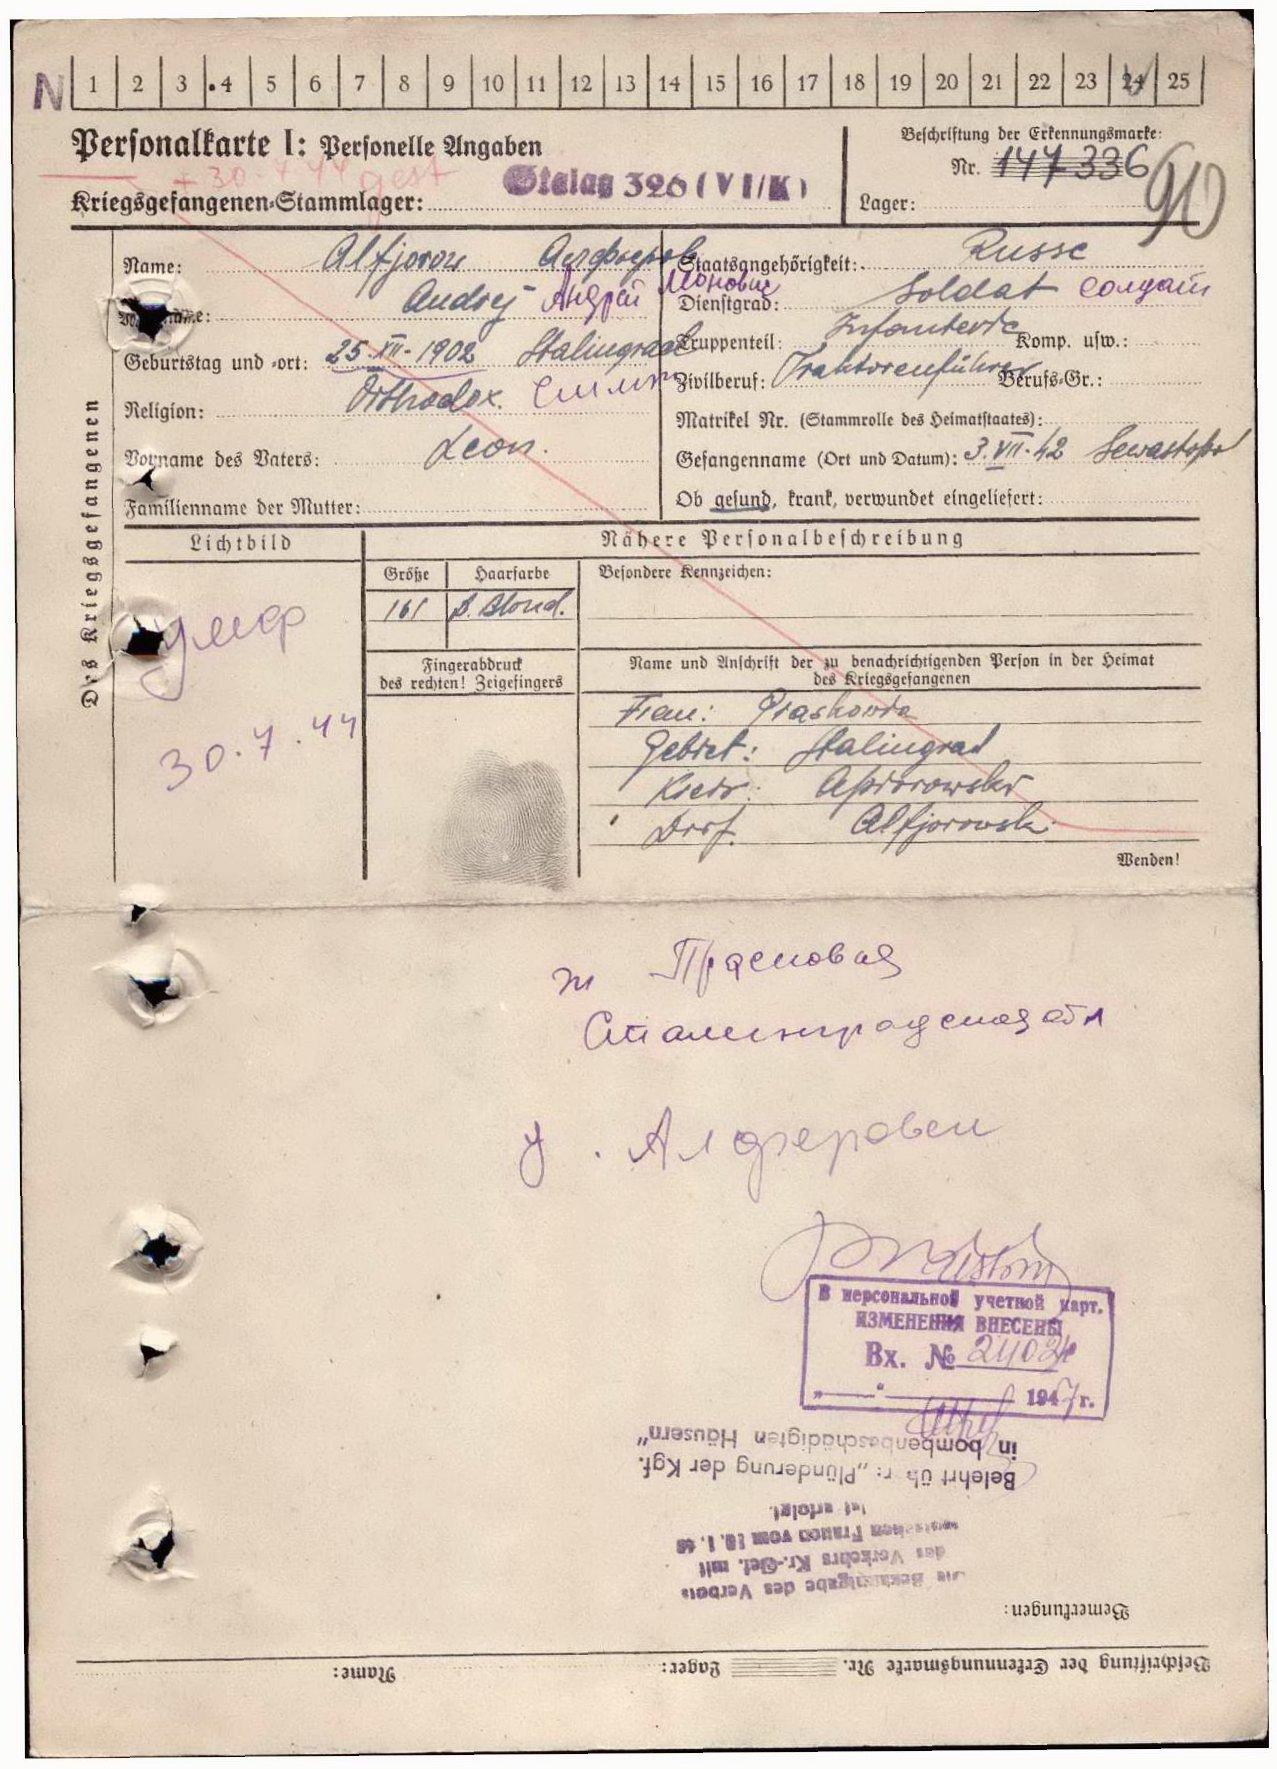 N 1 2 3 4 5 6 7 8 9 10 11 12 13 14 15 16 17 18 19 20 21 22 23 24 25
Personalkarte I: Personelle Angaben
Beschriftung der Erkennungsmarke:
Nr. 147336
+ 30.7.44 gest
Kriegsgefangenen-Stammlager: Stalag 326 (VI/K)
Lager:
910
Des Kriegsgefangenen
Name: Alfjorow Алфьоров
Andrej Андрей Леонович
Geburtstag und -ort: 25.XII.1902 Stalingrad
Religion: Orthodox.
Vorname des Vaters: Leon.
Familienname der Mutter:
Staatsangehörigkeit: Russe
Dienstgrad: Soldat солдат
Truppenteil: Infanterie Komp. usw.:
Zivilberuf: Traktorenführer Berufs-Gr.:
Matrikel Nr. (Stammrolle des Heimatstaates):
Gefangenname (Ort und Datum): 3.VII.42 Sewastopol
Ob gesund, krank, verwundet eingeliefert:
Lichtbild
Nähere Personalbeschreibung
Größe Haarfarbe Besondere Kennzeichen:
161 D. Blond.
Fingerabdruck
des rechten! Zeigefingers
Name und Anschrift der zu benachrichtigenden Person in der Heimat
des Kriegsgefangenen
умер
30.7.44
Frau: Praskowia
Gebiet: Stalingrad
Kreis:
Dorf. Alfjorowski
Wenden!
ж Прасковая
Сталинградская обл
Алферовси
В персональной учетной карт.
ИЗМЕНЕНИЯ ВНЕСЕНЫ
Вх. №
„ “ 1947 г.
in bombenbeschädigten Häusern"
Belehrt über: „Plünderung der Kgf.
ist erfolgt.
Frauen vom
des Verkehrs Kr.-Gef. mit
Die Bekanntgabe des Verbots
Bemerkungen:
Beschriftung der Erkennungsmarke Nr. Lager: Name: